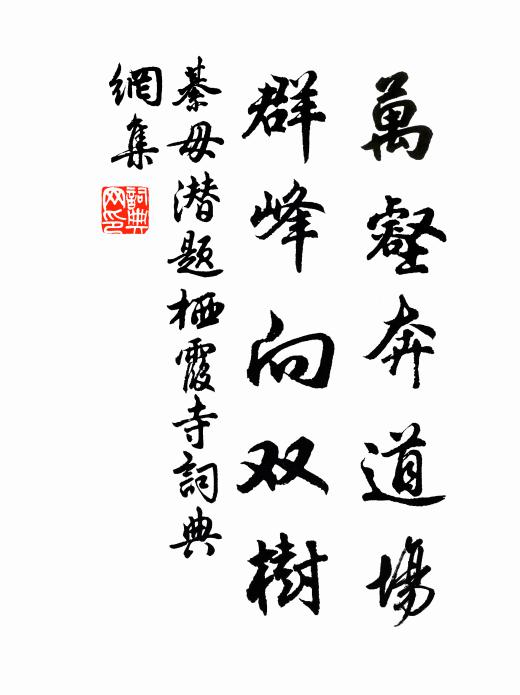 萬壑奔道場
群峰向双樹
綦毋潜题栖霞寺詞典
網集
詞典
网印